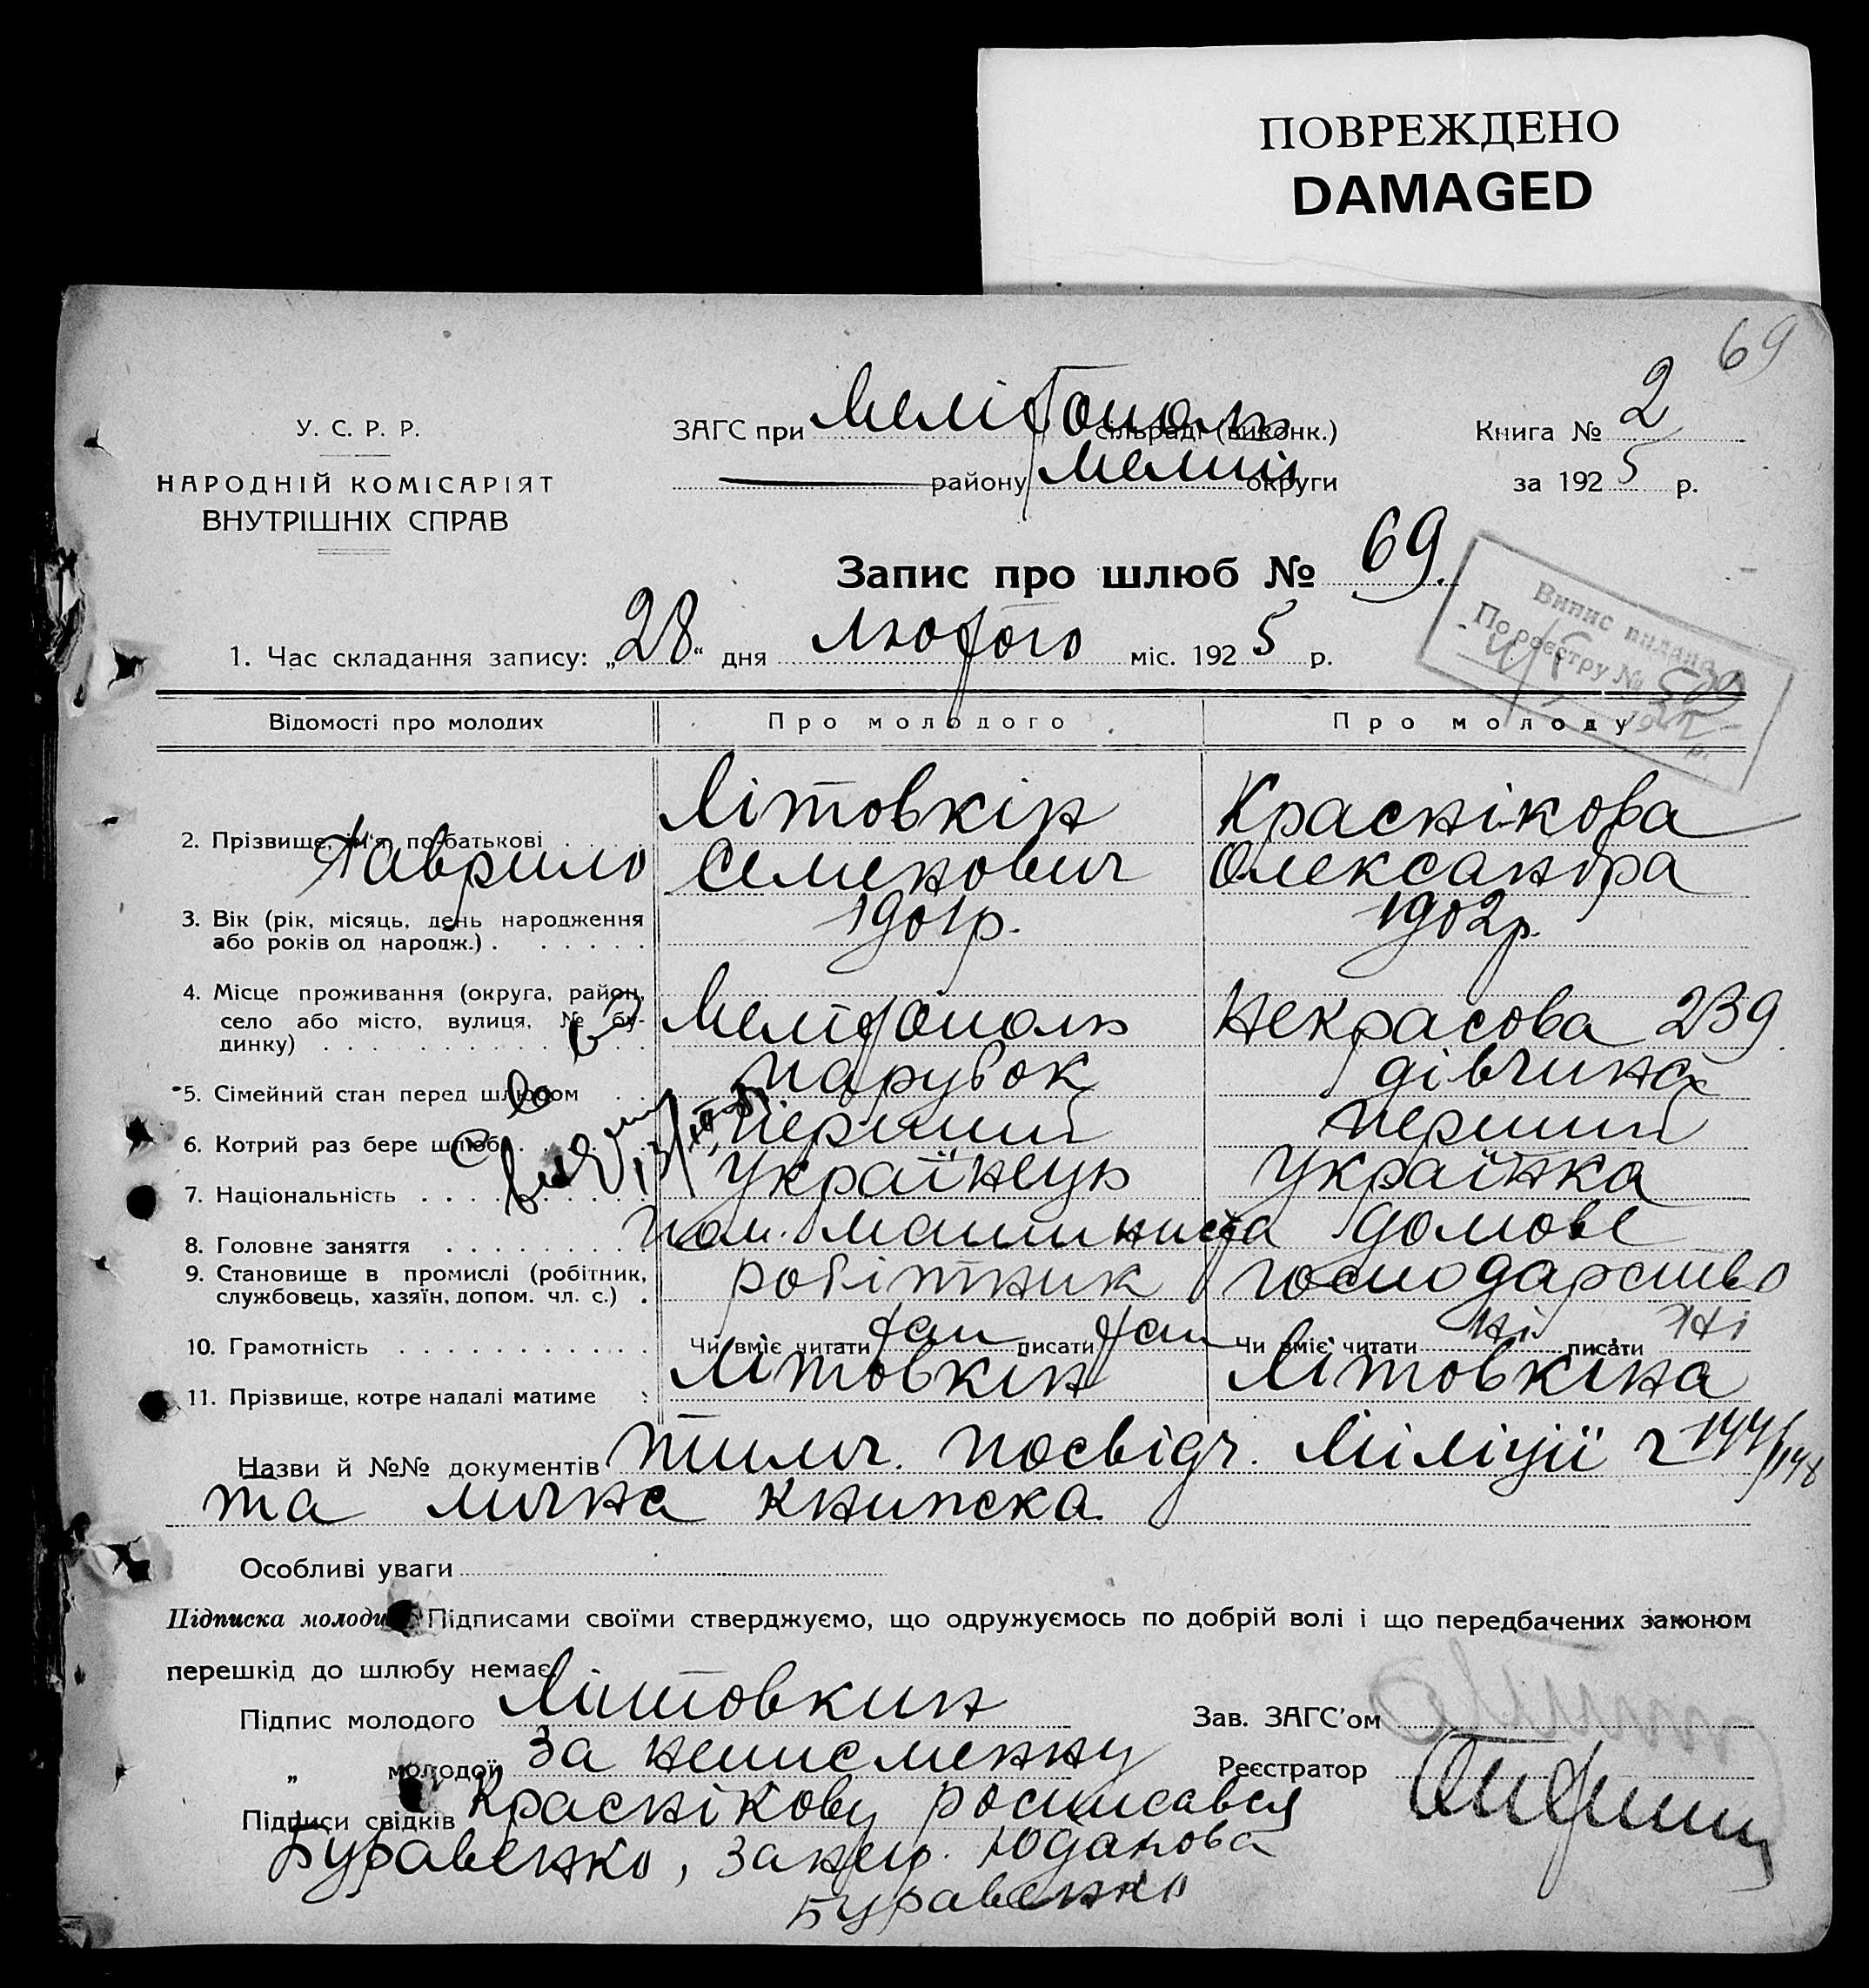 ПОВРЕЖДЕНО
DAMAGED
69
У. С. Р. Р.
НАРОДНІЙ КОМІСАРІЯТ
ВНУТРІШНІХ СПРАВ
ЗАГС при Мелітополь сільраді (виконк.)
району Мелит округи
Книга № 2
за 1925 р.
Запис про шлюб № 69.
Випис видано
По реєстру №
1. Час складання запису: „28“ дня лютого міс. 1925 р.
Відомості про молодих Про молодого Про молоду
2. Прізвище, ім'я, по батькові Літовкін Краснікова
Гаврило Семенович Олександра
3. Вік (рік, місяць, день народження або років од народж.) 1901р. 1902р.
4. Місце проживання (округа, район, село або місто, вулиця, № будинку) Мелітополь Некрасова 239
5. Сімейний стан перед шлюбом парубок дівчина
6. Котрий раз бере шлюб перший перший
7. Національність українець українка
8. Головне заняття пом. машиниста домове
9. Становище в промислі (робітник, службовець, хазяїн, допом. чл. с.) робітник господарство
10. Грамотність Чи вміє читати так писати так Чи вміє читати ні писати ні
11. Прізвище, котре надалі матиме Літовкін Літовкіна
Назви й №№ документів тимч. посвідч. Міліції
та лична книжка
Особливі уваги
Підписка молодих Підписами своїми стверджуємо, що одружуємось по добрій волі і що передбачених законом
перешкід до шлюбу немає.
Підпис молодого Литовкин Зав. ЗАГС'ом
„ молодої За неписменну Реєстратор
Підписи свідків Краснікову росписався
Буравенко, Юданова
Буравенко